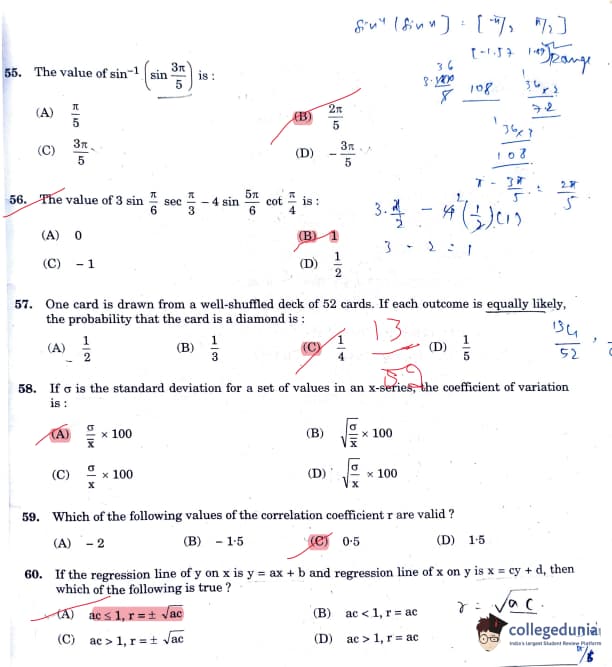 sin⁻¹ (sin x) = [-π/2, π/2]
[-1.57 1.57]
Range
55. The value of sin⁻¹ (sin 3π/5) is :
36
108
36×2
72
36×3
108
(A) π/5
(B) 2π/5
(C) 3π/5
(D) – 3π/5
π - 3π/5 = 2π/5
56. The value of 3 sin π/6 sec π/3 – 4 sin 5π/6 cot π/4 is :
(A) 0
(B) 1
(C) – 1
(D) 1/2
3 - 2 = 1
57. One card is drawn from a well-shuffled deck of 52 cards. If each outcome is equally likely,
the probability that the card is a diamond is :
(A) 1/2
(B) 1/3
(C) 1/4
(D) 1/5
13
52
58. If σ is the standard deviation for a set of values in an x-series, the coefficient of variation
is :
(A) σ/x̅ × 100
(B) √(σ/x̅) × 100
(C) σ/x × 100
(D) √(σ/x) × 100
59. Which of the following values of the correlation coefficient r are valid ?
(A) – 2
(B) – 1·5
(C) 0·5
(D) 1·5
60. If the regression line of y on x is y = ax + b and regression line of x on y is x = cy + d, then
which of the following is true ?
(A) ac ≤ 1, r = ± √ac
(B) ac < 1, r = ac
r = √ac
(C) ac > 1, r = ± √ac
(D) ac > 1, r = ac
collegedunia
India's largest Student Review Platform